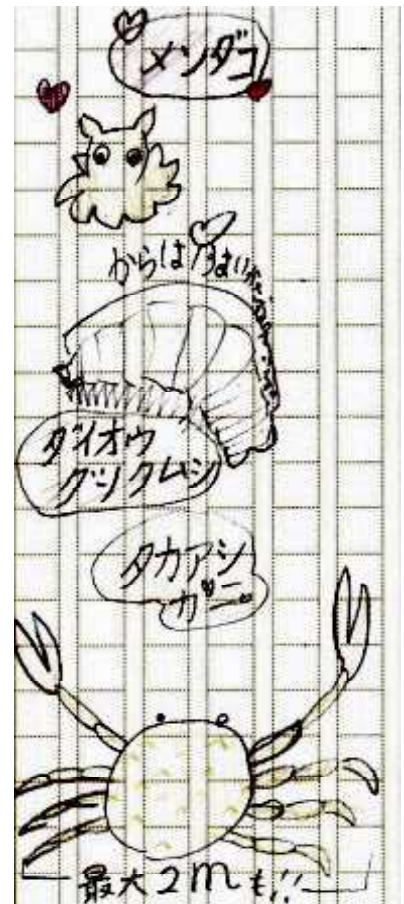 メンダコ
からは
ダイオウ
グソクムシ
タカアシ
ガニ
最大2mも!!